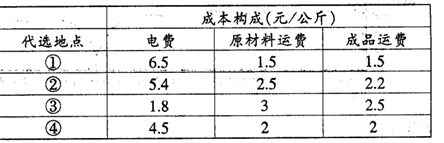 成本构成(元/公斤)
代选地点 电费 原材料运费 成品运费
① 6.5 1.5 1.5
② 5.4 2.5 2.2
③ 1.8 3 2.5
④ 4.5 2 2